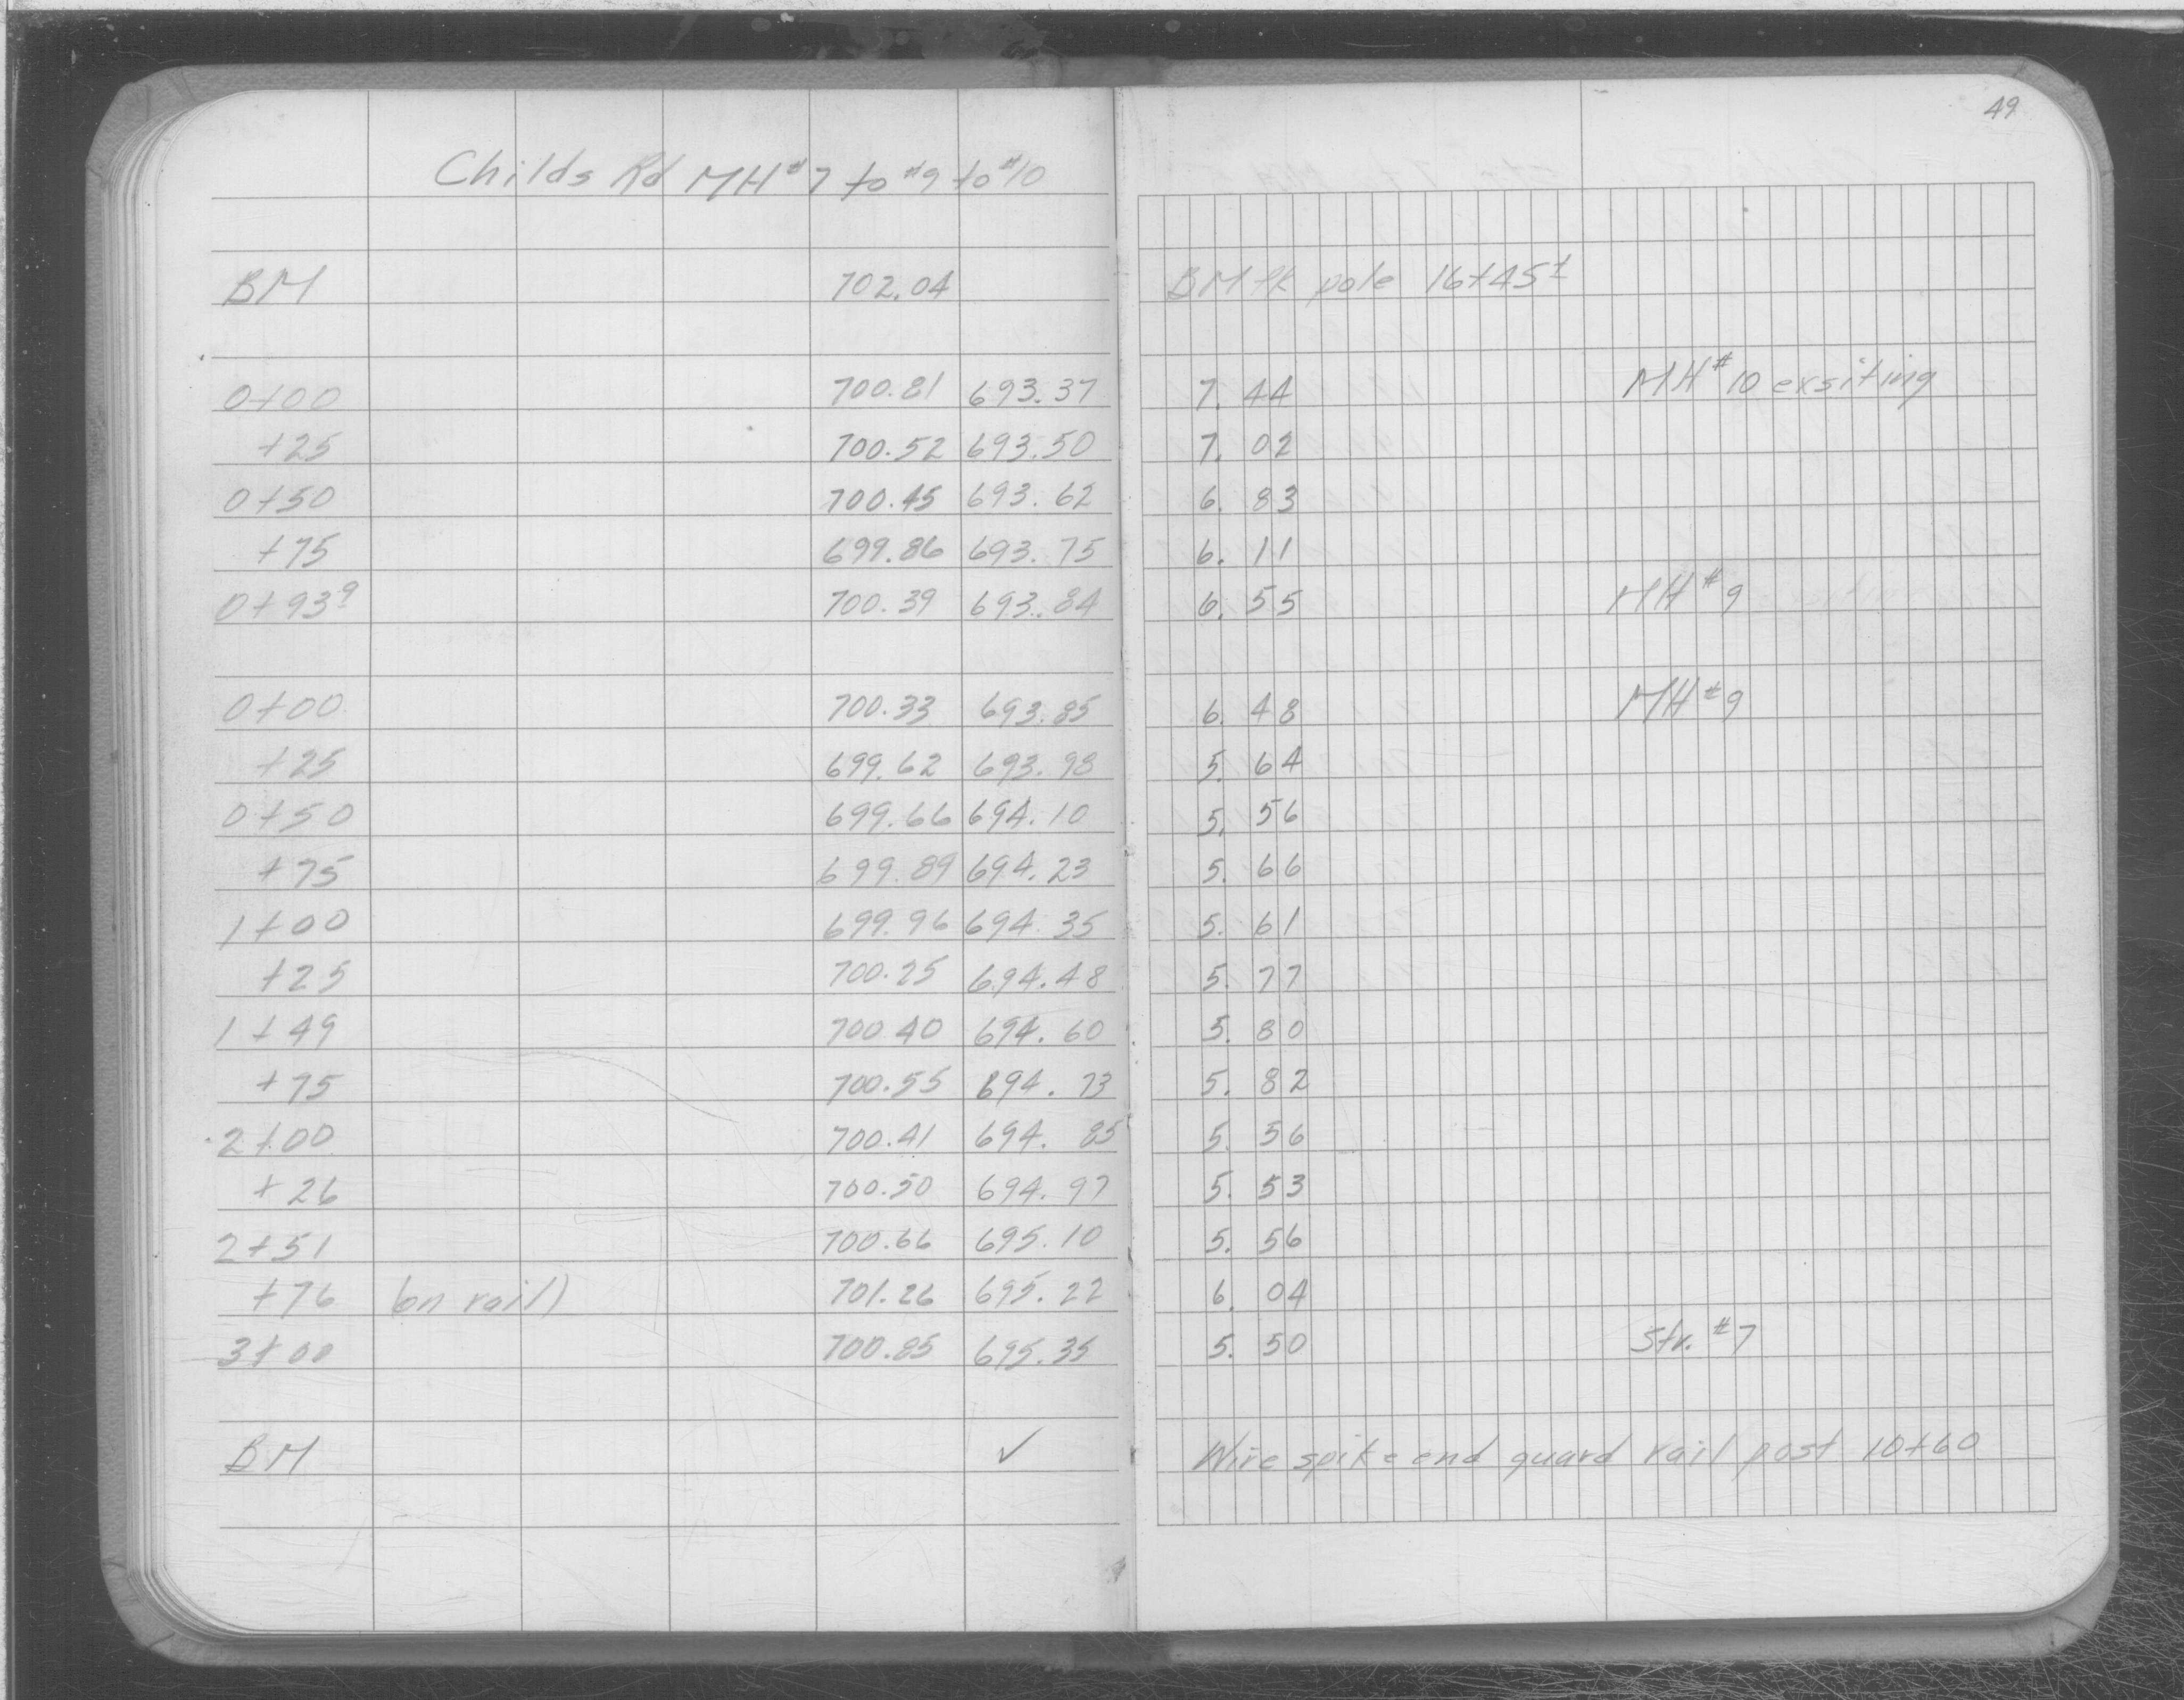 49
Childs Rd MH#7 to #9 to #10
BM 702.04 BM tk pole 16+45±
0+00 700.81 693.37 7.44 MH#10 exsiting
+25 700.52 693.50 7.02
0+50 700.45 693.62 6.83
+75 699.86 693.75 6.11
0+93⁹ 700.39 693.84 6.55 MH#9
0+00 700.33 693.85 6.48 MH#9
+25 699.62 693.98 5.64
0+50 699.66 694.10 5.56
+75 699.89 694.23 5.66
1+00 699.96 694.35 5.61
+25 700.25 694.48 5.77
1+49 700.40 694.60 5.80
+75 700.55 694.73 5.82
2+00 700.41 694.85 5.56
+26 700.50 694.97 5.53
2+51 700.66 695.10 5.56
+76 (on rail) 701.26 695.22 6.04
3+00 700.85 695.35 5.50 Str. #7
BM ✓ Wire spike end guard rail post 10+60